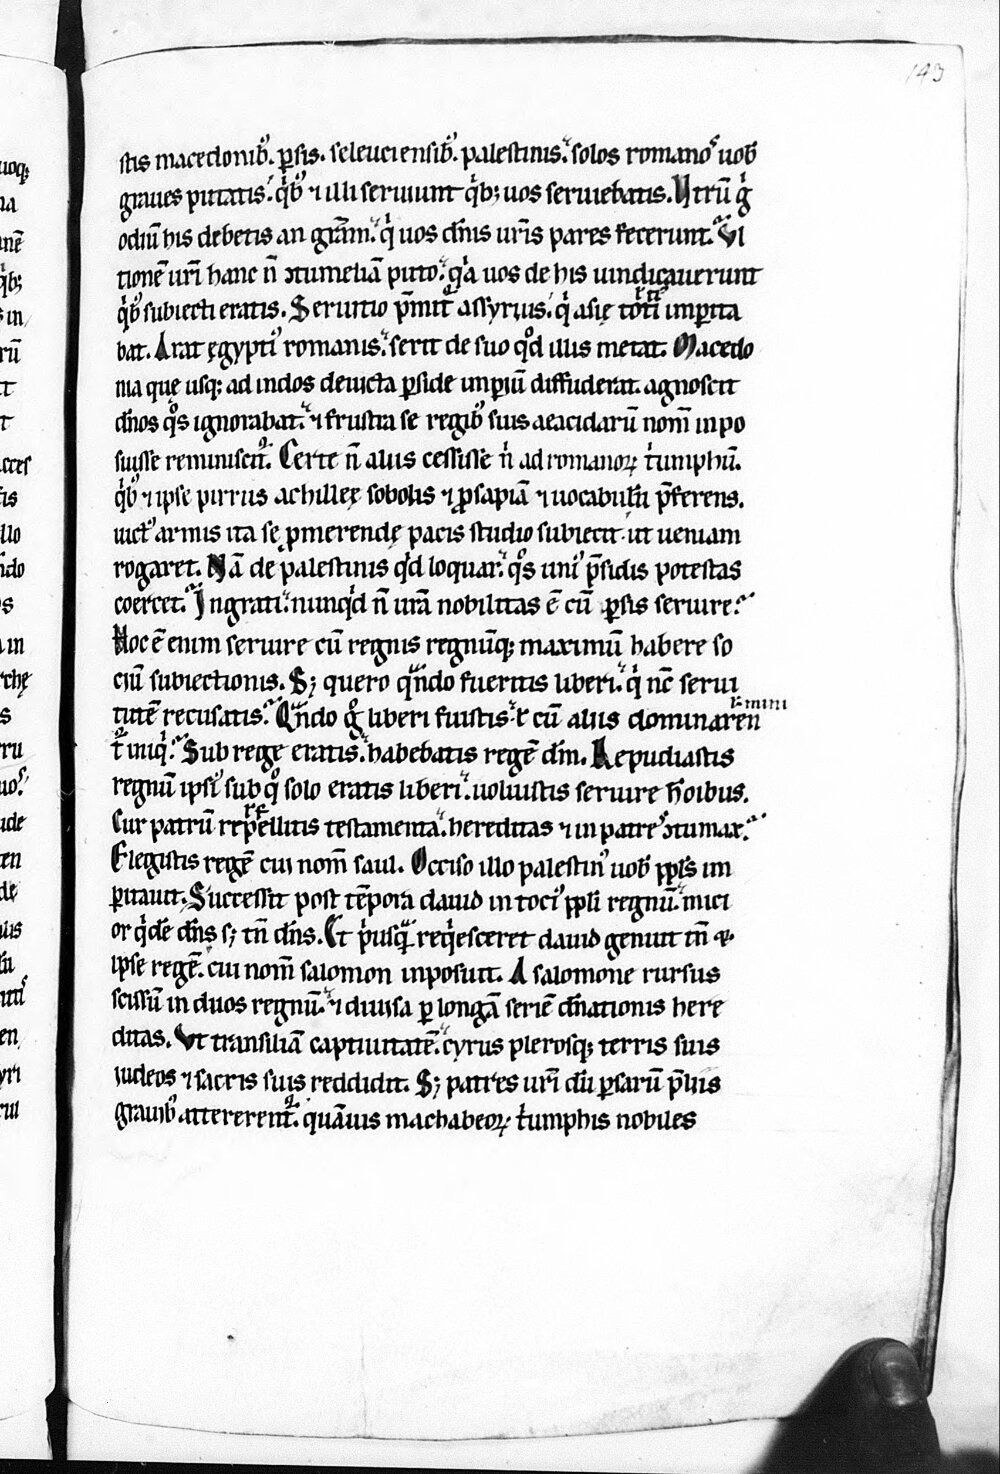 143
stis macedonib᷒. ꝑsis. seleuciensib᷒. palestinis. solos romanos uob̄
graues putatis. qͥb᷒ ⁊ illi seruiunt qͥb; uos seruiebatis. Utrū gͦ
odiū his debetis an gr̄am. qͥ uos dn̄is ur̄is pares fecerunt. Ul
tionē ur̄i hanc n̄ ↄtumeliā puto. qͥa uos de his uindicauerunt
qͥb᷒ subiecti eratis. Seruitio p̄mit᷒ assyrius. qͥ asię toti imꝑita
bat. Arat ęgypt᷒ romanis. serit de suo qͦd illis metat. Macedo
nia quę usq; ad indos deuicta ꝑside imꝑiū diffuderat. agnoscit
dn̄os qͦs ignorabat. ⁊ frustra se regib᷒ suis aeacidarū nom̄ inpo
suisse reminiscit᷑. Certe n̄ aliis cessisse nͥ ad romanoꝝ tͥumphū.
qͥb᷒ ⁊ ipse pirrus achillęę sobolis ⁊ ꝓsapiā ⁊ uocabulū p̄ferens.
uict᷒ armis ita se ꝓmerendę pacis studio subiecit. ut ueniam
rogaret. Nā de palestinis qͥd loquar. qͦs uni᷒ p̄sidis potestas
coercet. Ingrati. nunqͥd n̄ ur̄a nobilitas ē cū ꝑsis seruire.
Hoc ē enim seruire cū regnis regnūq; maximū habere so
ciū subiectionis. S; quero qn̄do fueritis liberi. qͥ nc̄ serui
tutē recusatis. Qn̄do gͦ liberi fuistis. ⁊ cū aliis dominaren
t᷑ iniqͥ. Sub rege eratis. habebatis regē dm̄. Repudiastis
regnū ipsi᷒ sub qͦ solo eratis liberi. uoluistis seruire ho̅ibus.
Cur patrū repellitis testamenta. hereditas ⁊ in patres ↄtumax.
Elegistis regē cui nom̄ saul. Occiso illo palestin᷒ uob̄ ppl̄s im
ꝑitauit. Successit post tēpora dauid in toci᷒ ppl̄i regnū. miti
or qͥdē dn̄s s; tn̄ dn̄s. Et pͥusqͣ reqͥesceret dauid genuit tn̄ ⁊
ipse regē. cui nom̄ salomon inposuit. A salomone rursus
scissū in duos regnū. ⁊ diuisa ꝑ longā seriē dn̄ationis here
ditas. Ut transiliā captiuitatē. cyrus plerosq; terris suis
iudeos ⁊ sacris suis reddidit. S; patres ur̄i dū ꝑsarū p̄liis
grauib᷒ attererent᷑. quāuis machabeoꝝ tͥumphis nobiles